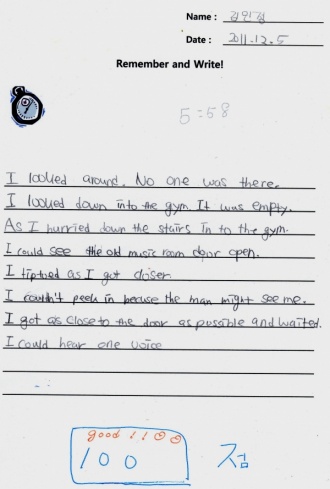 Name : 김민정
Date : 2011.12.5
Remember and Write!
5:58
I looked around. No one was there.
I looked down into the gym. It was empty.
As I hurried down the stairs in to the gym.
I could see the old music room door open.
I tiptoed as I got closer.
I couldn't peek in becuse the man might see me.
I got as close to the door as possible and waited.
I could hear one voice
good!!
100 점